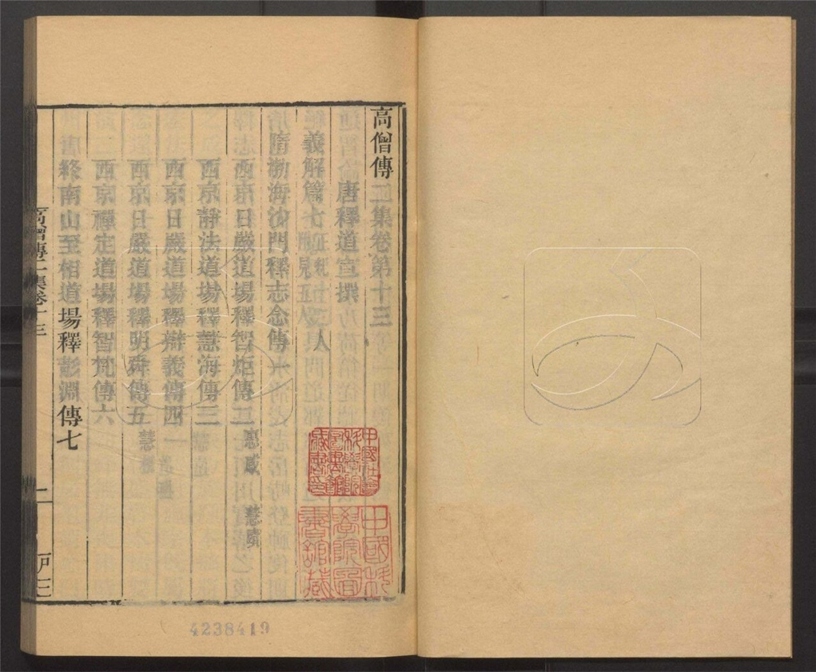 高僧傳二集卷第十三
唐釋道宣撰
義解篇七 正紀十三人 附見五人
隋渤海沙門釋志念傳一
西京日嚴道場釋智炬傳二
西京靜法道場釋慧海傳三
西京日嚴道場釋辯義傳四
西京日嚴道場釋明舜傳五
西京禪定道場釋智梵傳六
唐終南山至相道場釋彭淵傳七
高僧傳二集卷十三
4238419